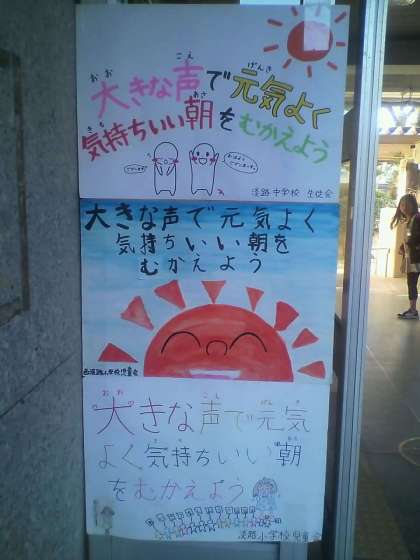 大きな声で元気よく
気持ちいい朝をむかえよう
淡路中学校 生徒会
大きな声で元気よく
気持ちいい朝を
むかえよう
西淡路小学校児童会
大きな声で元気
よく気持ちいい朝
をむかえよう
淡路小学校児童会